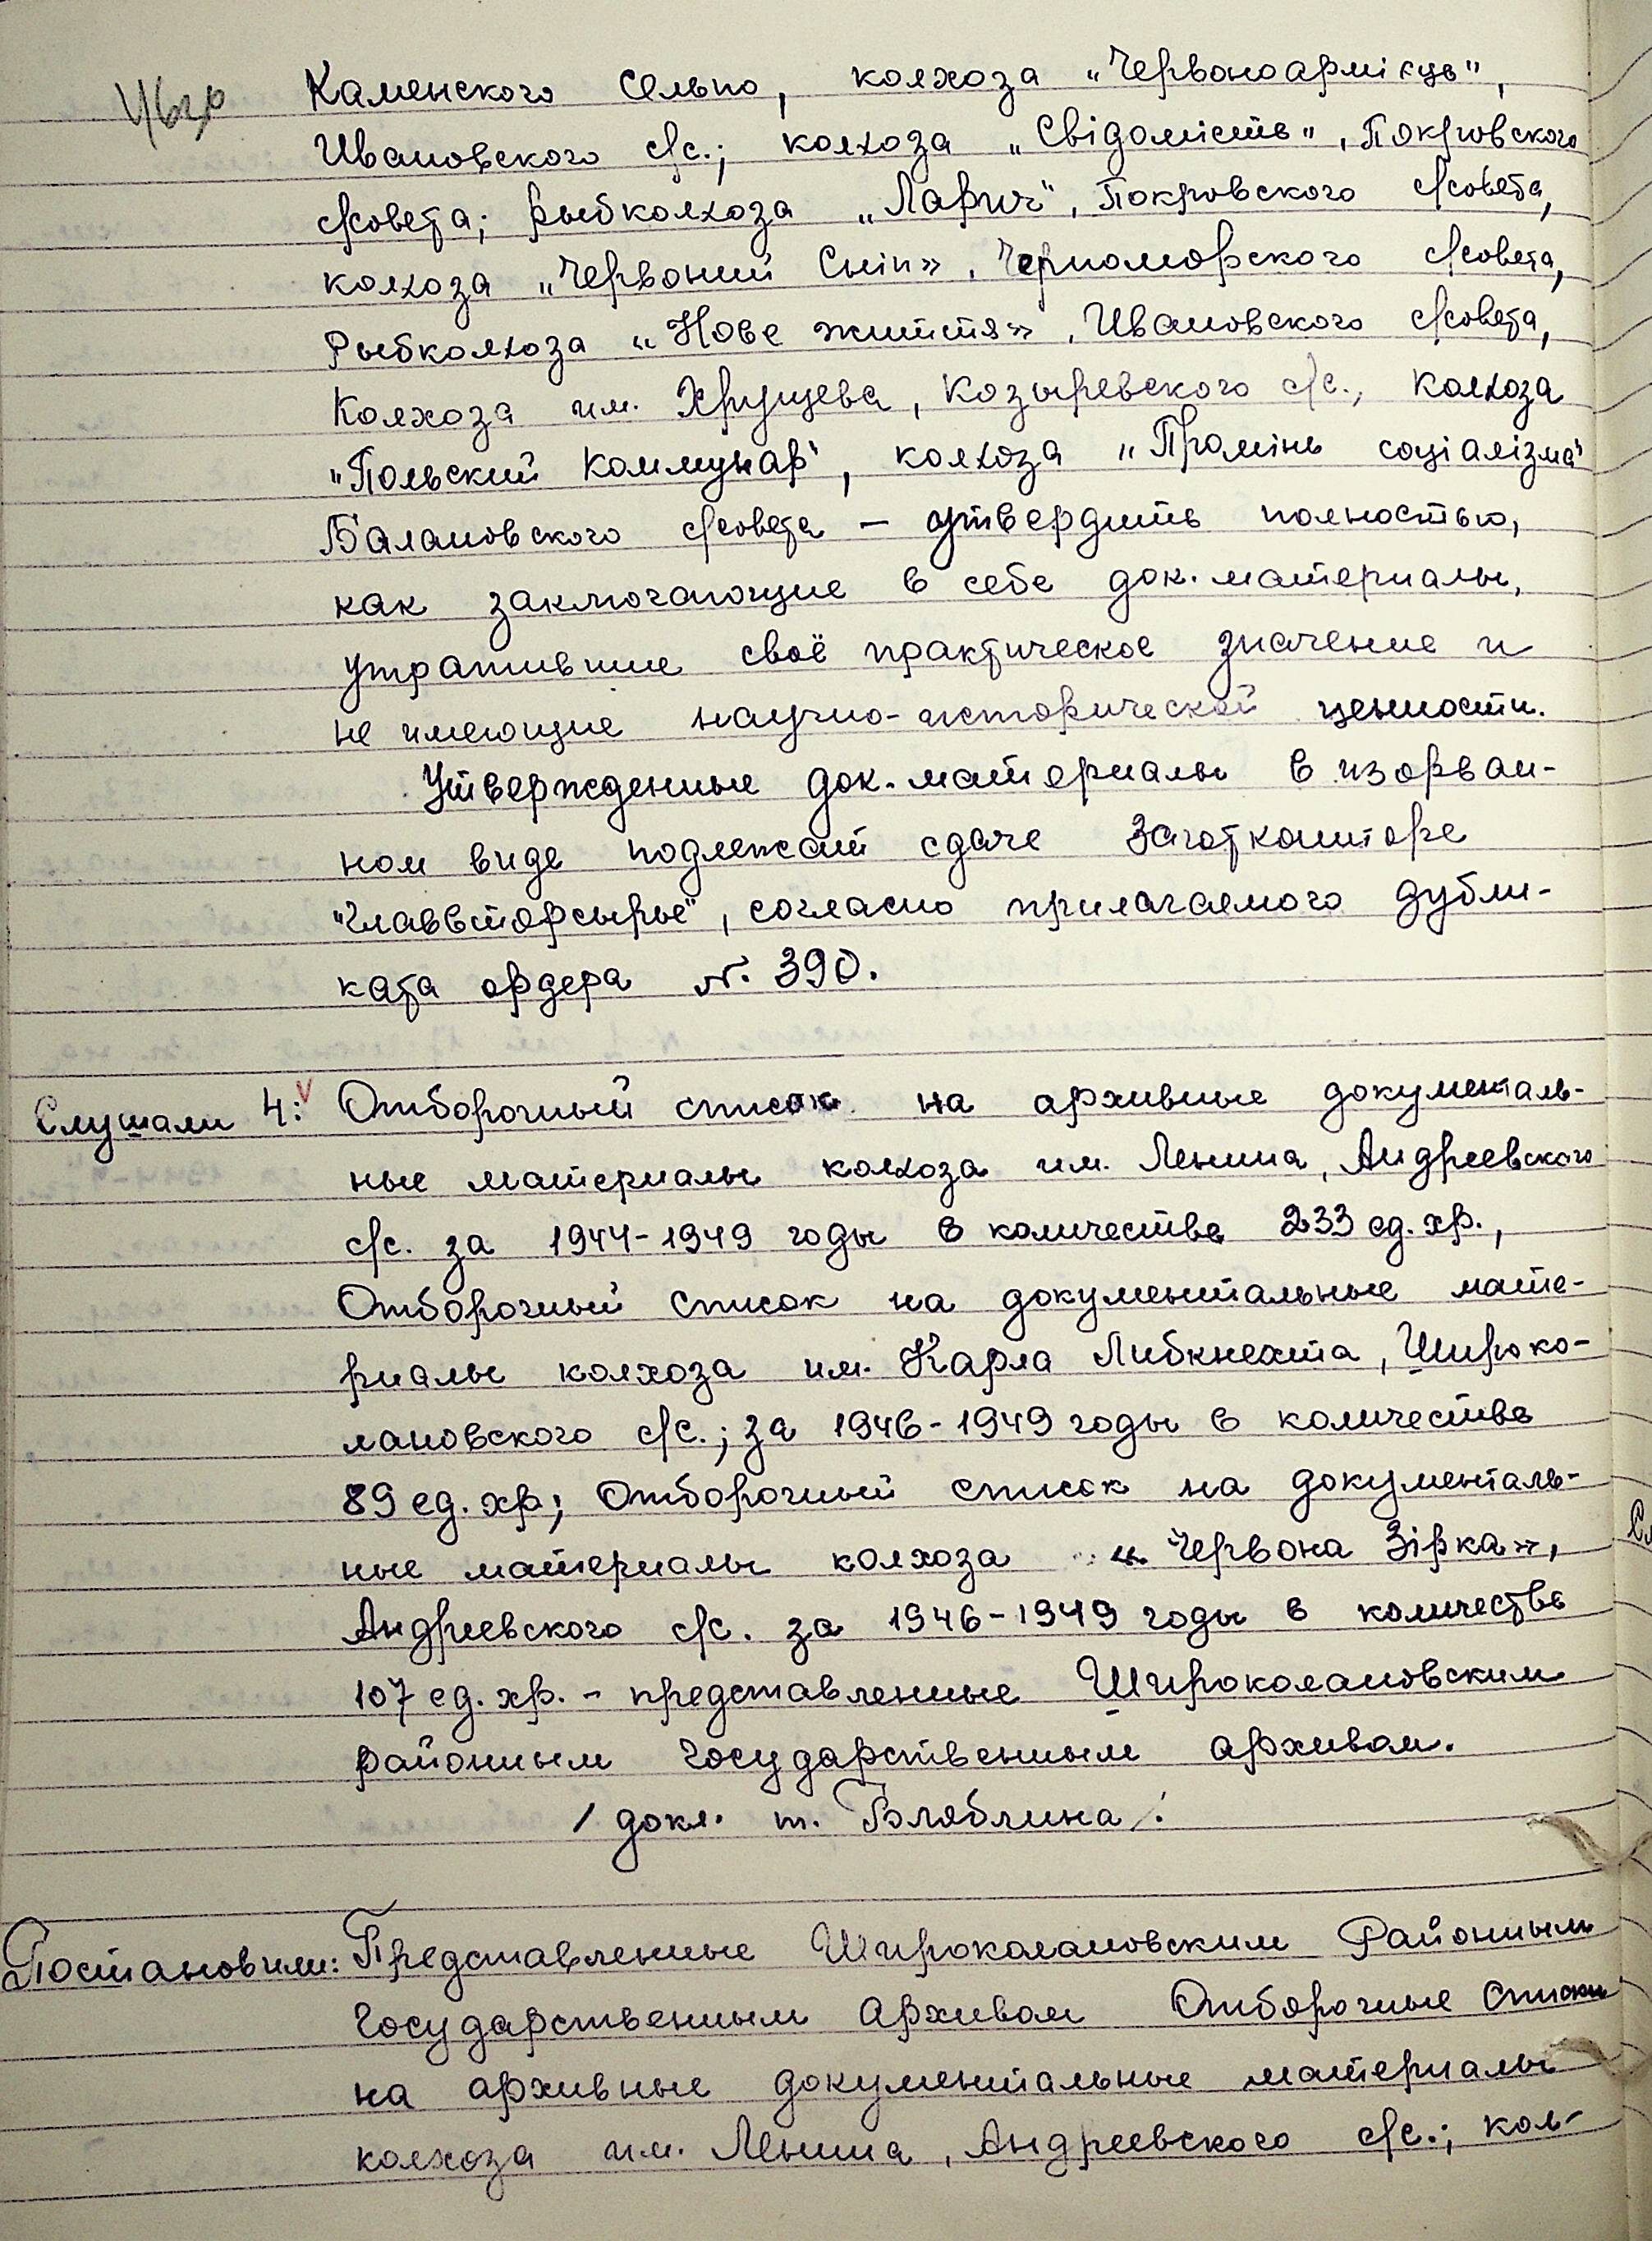 Каменского Сельпо, колхоза „Червоноармієць",
Ивановского с/с.; колхоза „Свідомість", Покровского
с/совета; рыбколхоза „Ларич", Покровского с/совета,
колхоза „Червоний Сніп», Черноморского с/совета,
Рыбколхоза «Нове життя», Ивановского с/совета,
Колхоза им. Хрущева, Козыревского с/с., колхоза
"Польский Коммунар", колхоза „Промінь соціалізма"
Балановского с/совета – утвердить полностью,
как заключающие в себе док. материалы,
утратившие своё практическое значение и
не имеющие научно-исторической ценности.
Утвержденные док. материалы в изорван-
ном виде подлежат сдаче Заготконторе
"Главвторсырье", согласно прилагаемого дубли-
ката ордера №. 390.
Слушали 4: Отборочный список на архивные документаль-
ные материалы колхоза им. Ленина, Андреевского
с/с. за 1944-1949 годы в количестве 233 ед. хр.,
Отборочный список на документальные мате-
риалы колхоза им. Карла Либкнехта, Широко-
лановского с/с.; за 1946-1949 годы в количестве
89 ед. хр; Отборочный список на документаль-
ные материалы колхоза «Червона Зірка»,
Андреевского с/с. за 1946-1949 годы в количестве
107 ед. хр. – представленные Широколановским
районным Государственным архивом.
/докл. т. Бляблина/.
Постановили: Представленные Широколановским Районным
Государственным Архивом Отборочные списки
на архивные документальные материалы
колхоза им. Ленина, Андреевского с/с.; кол-